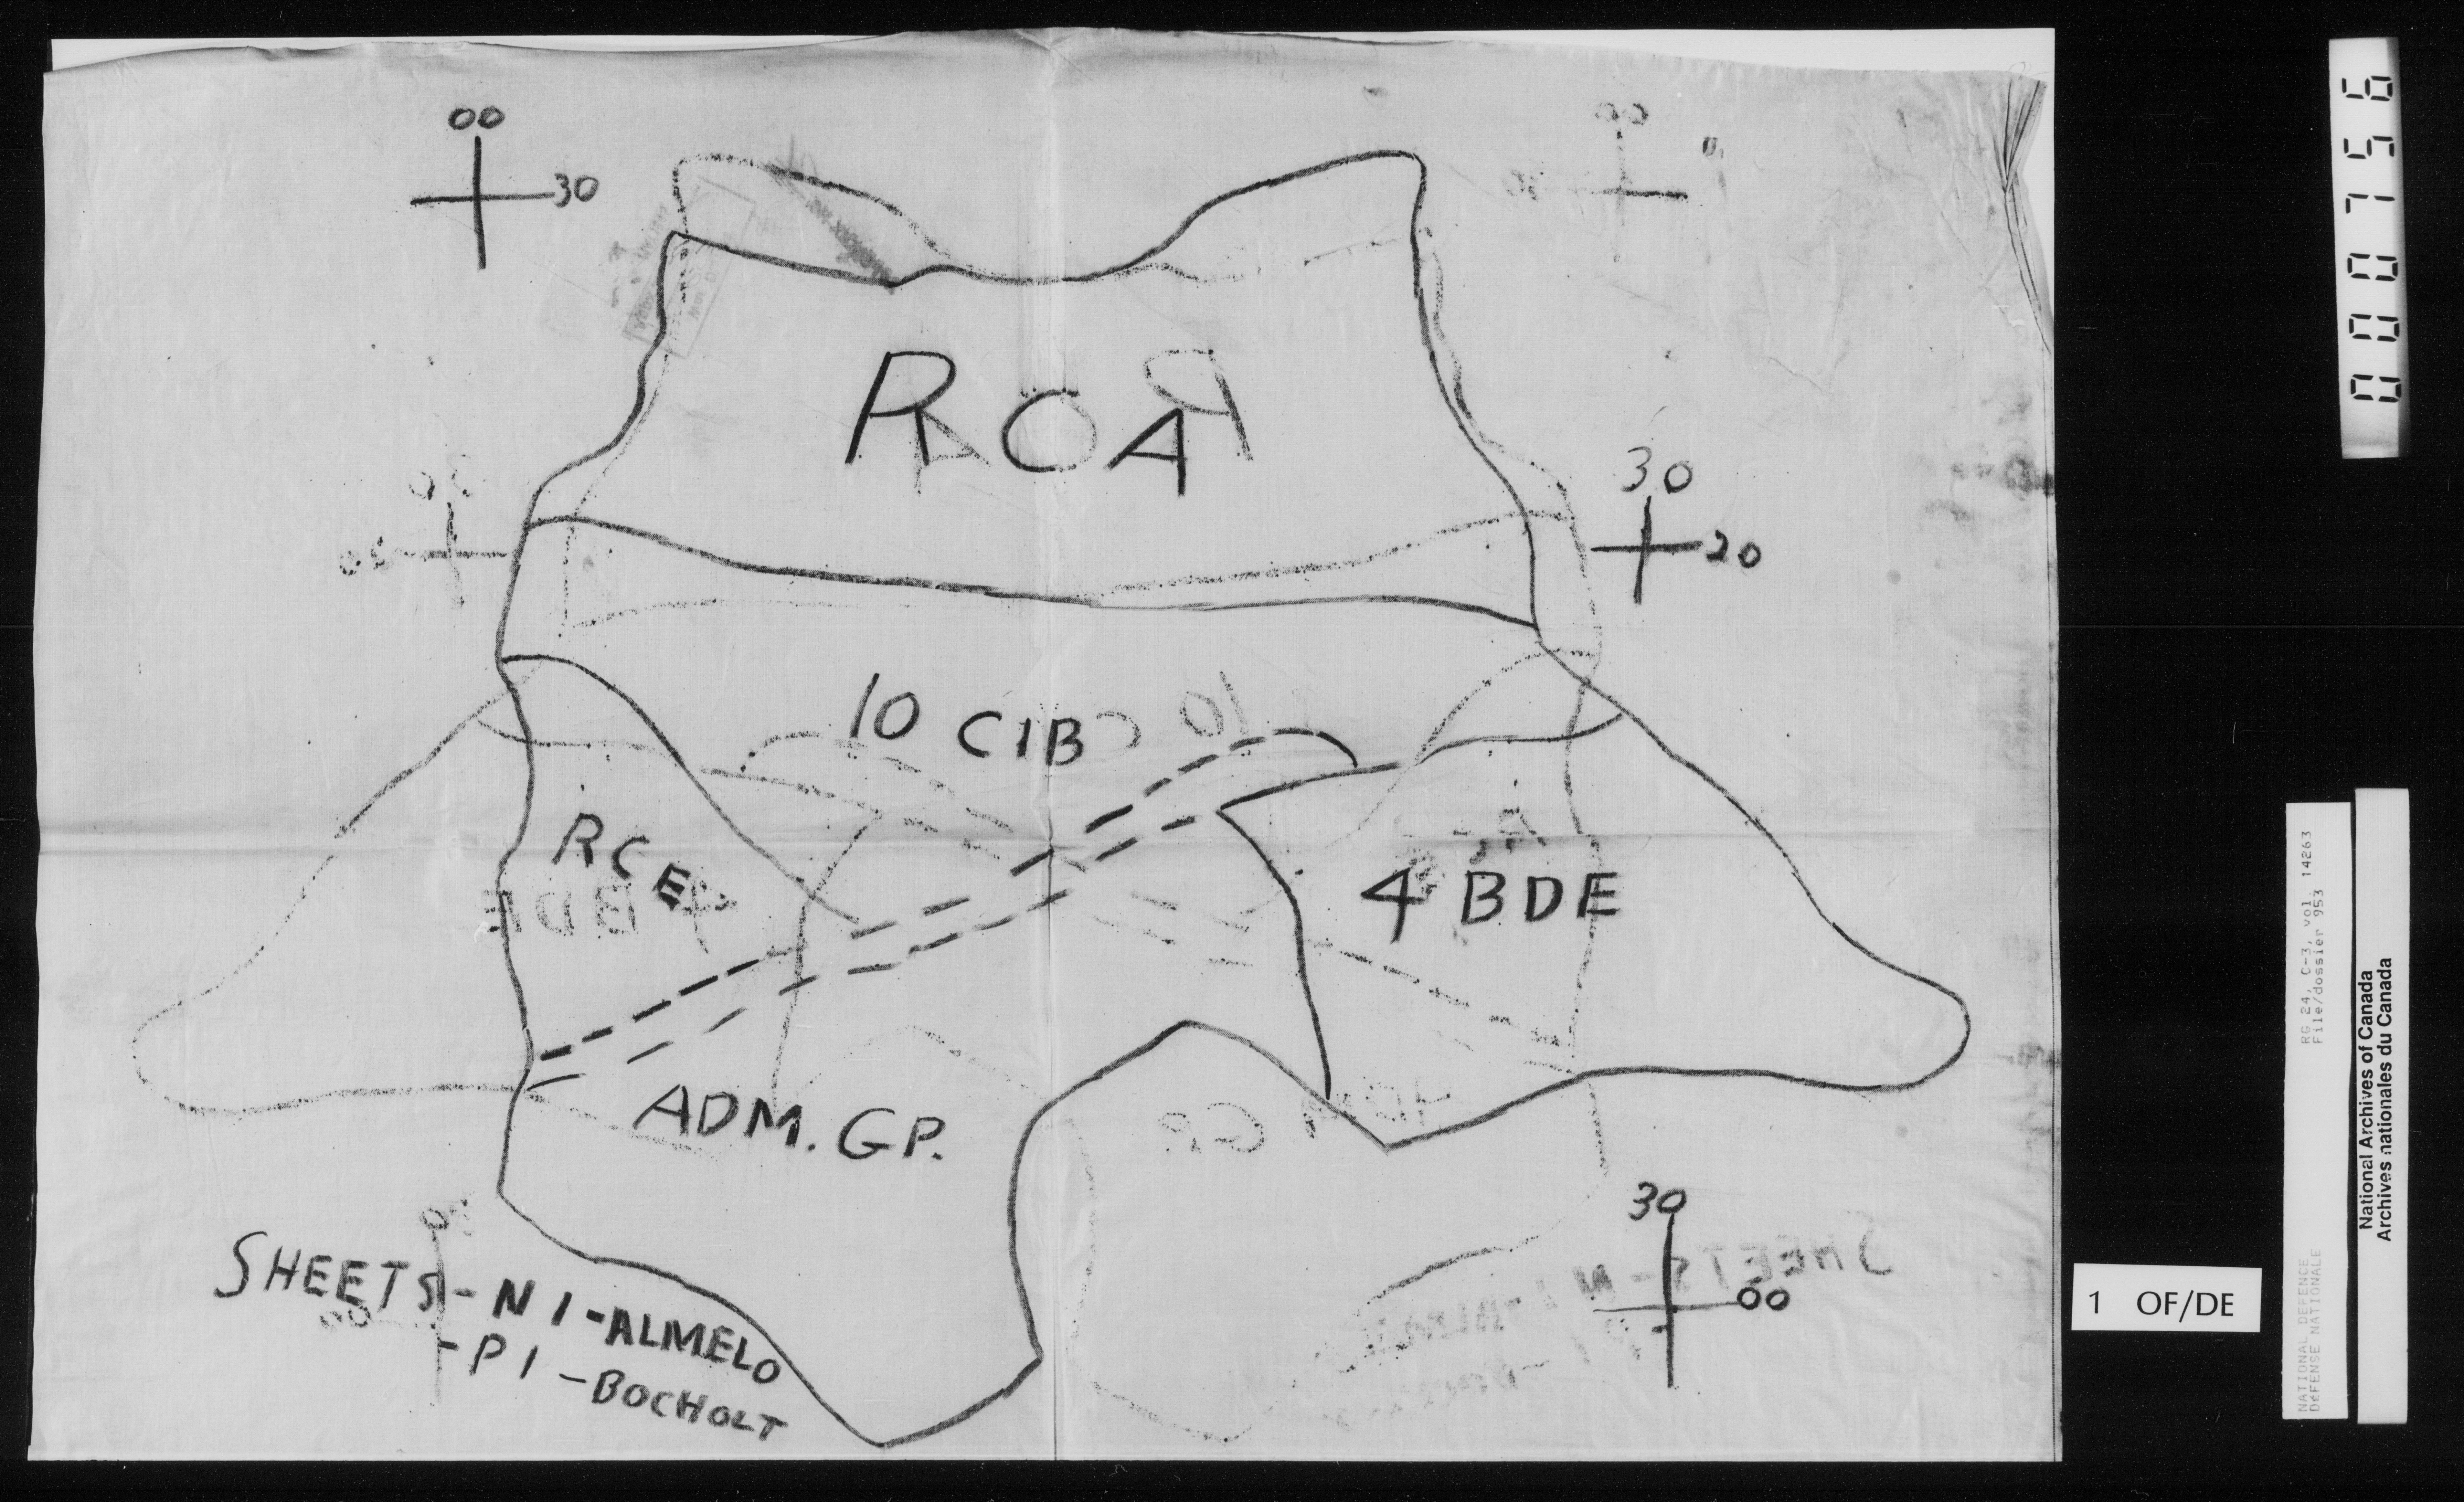 00
30
RCA
30
20
10 CIB
RCE
4 BDE
ADM. GP.
30
00
SHEETS - N 1 - ALMELO
- P 1 - BOCHOLT
0000756
1 OF/DE
RG 24, C-3, vol. 14263
File/dossier 953
NATIONAL DEFENCE
DÉFENSE NATIONALE
National Archives of Canada
Archives nationales du Canada